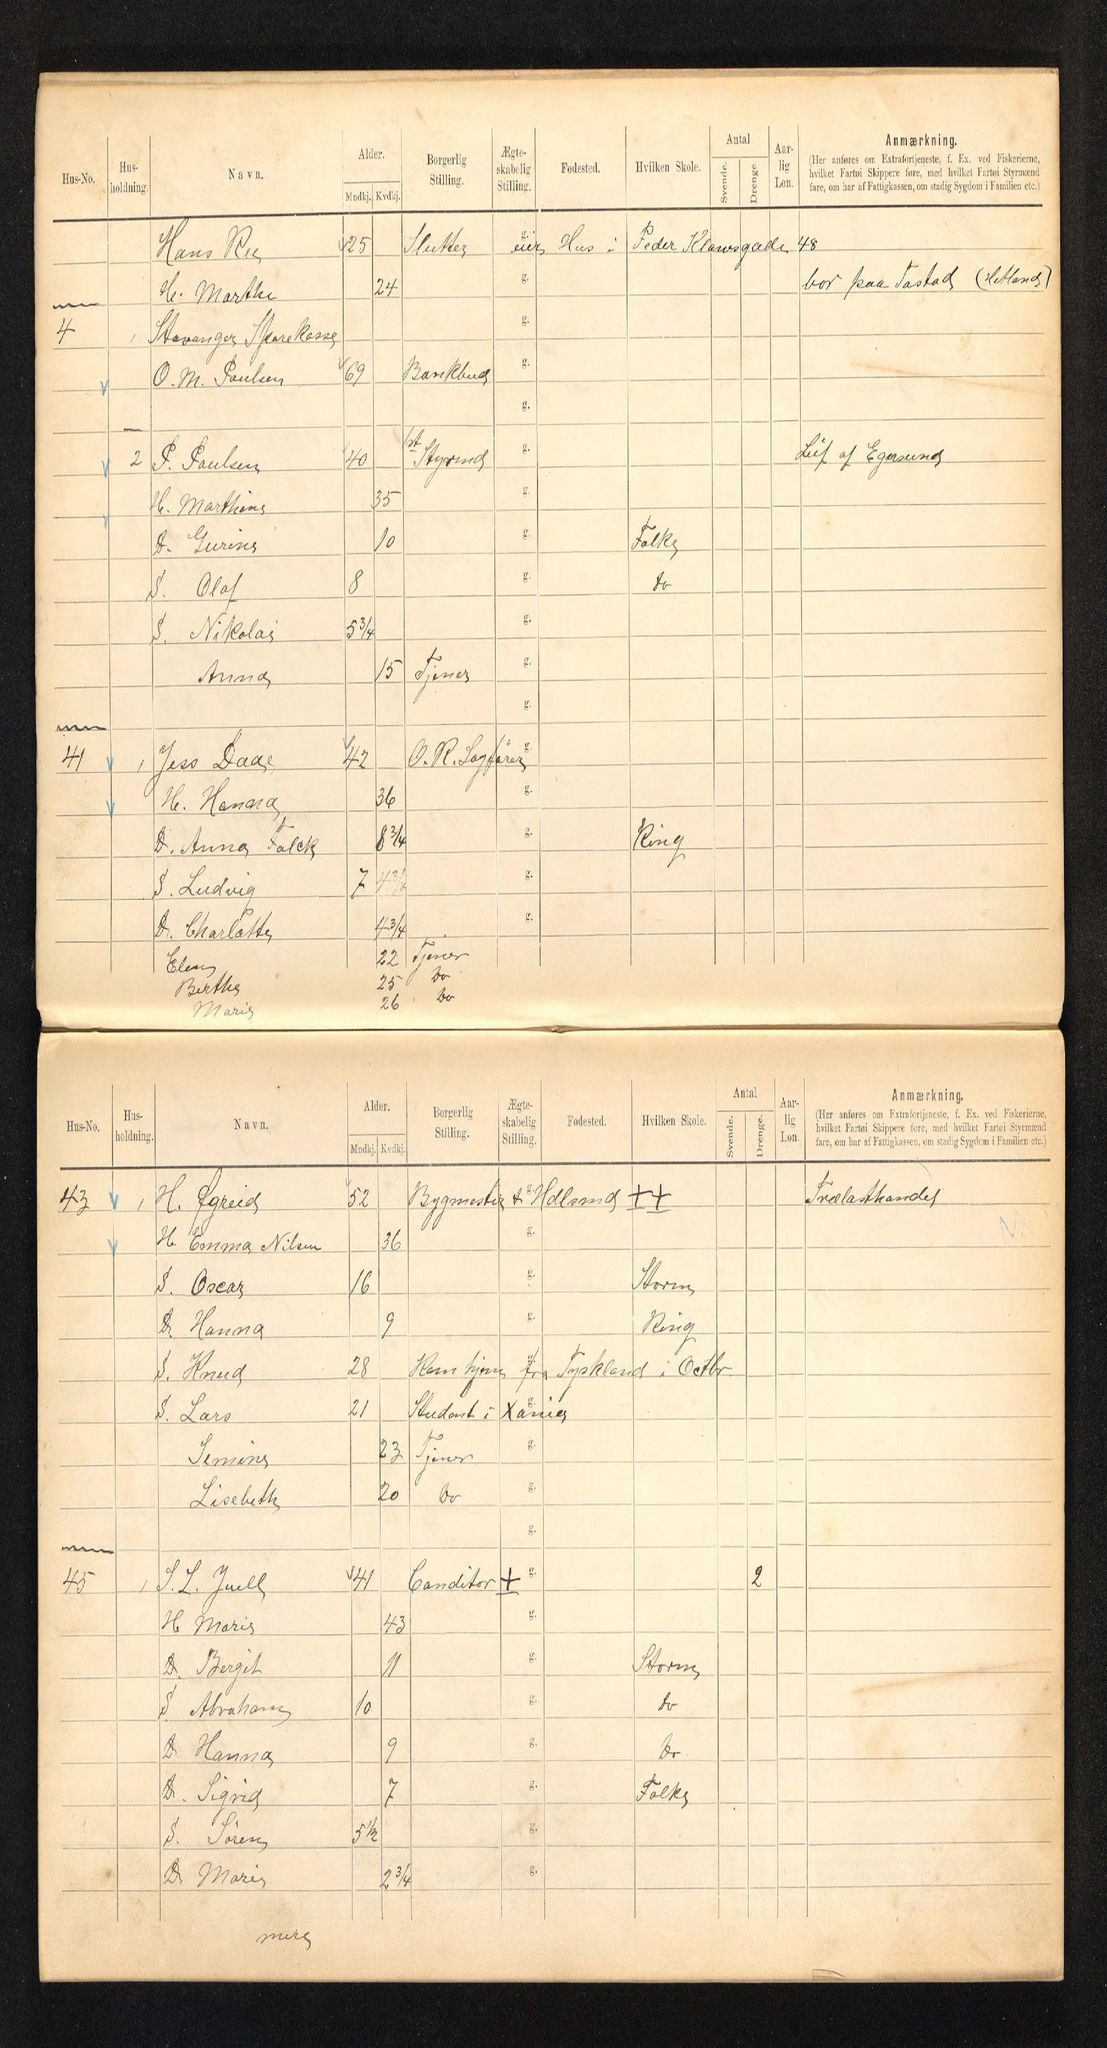 Hus-No. Hus-holdning. Navn. Alder. Mndkj. Kvdkj. Borgerlig Stilling. Ægte-skabelig Stilling. Fødested. Hvilken Skole. Antal Svende. Drenge. Aar-lig Løn. Anmærkning.
(Her anføres om Extrafortjeneste, f. Ex. ved Fiskerierne, hvilket Fartøi Skippere føre, med hvilket Fartøi Styrmænd fare, om har af Fattigkassen, om stadig Sygdom i Familien etc.)
Hans 25 Slutter g. eier Hus i Peder Klowsgade 48
H. Marthe 24 g. bor paa Tastad (Hetland)
4 1 Stavanger Sparekasse g.
O. M. Paulsen 69 Bankbud g.
g.
2 P. Paulsen 40 1st Styrmd g. Leif af Egersund
H. Marthine 35 g.
D. Gurine 10 g. Folke
S. Olaf 8 g. do
S. Nikolai 5 3/4 g.
Anna 15 Tjener g.
g.
41 1 Jess Daae 42 O. R. Sagfører g.
H. Hanna 36 g.
D. Anna Falck 8 3/4 g. Ring
S. Ludvig 7 4 3/4 g.
D. Charlotte 4 3/4 g.
Elen 22 Tjener
Berthe 25 Do
Marie 26 Do
Hus-No. Hus-holdning. Navn. Alder. Mndkj. Kvdkj. Borgerlig Stilling. Ægte-skabelig Stilling. Fødested. Hvilken Skole. Antal Svende. Drenge. Aar-lig Løn. Anmærkning.
(Her anføres om Extrafortjeneste, f. Ex. ved Fiskerierne, hvilket Fartøi Skippere føre, med hvilket Fartøi Styrmænd fare, om har af Fattigkassen, om stadig Sygdom i Familien etc.)
43 1 H. Øgreid 52 Bygmester & g. Hdlsmd ++ Trælasthandel
H Emma Nilsen 36 g.
S. Oscar 16 g. Storm
D. Hanna 9 g. Ring
S. Knud 28 Kom hjem fra Tyskland i Octbr.
S. Lars 21 Student i Xania g.
Semine 23 Tjener g.
Lisebeth 20 Do g.
g.
45 1 S. L. Juell 41 Conditor + g. 2
H Marie 43 g.
D. Bergit 11 g. Storm
S Abraham 10 g. do
D. Hanna 9 g. Do
D. Sigrid 7 g. Folke
S. Søren 5 1/2 g.
D Marie 2 3/4 g.
mere